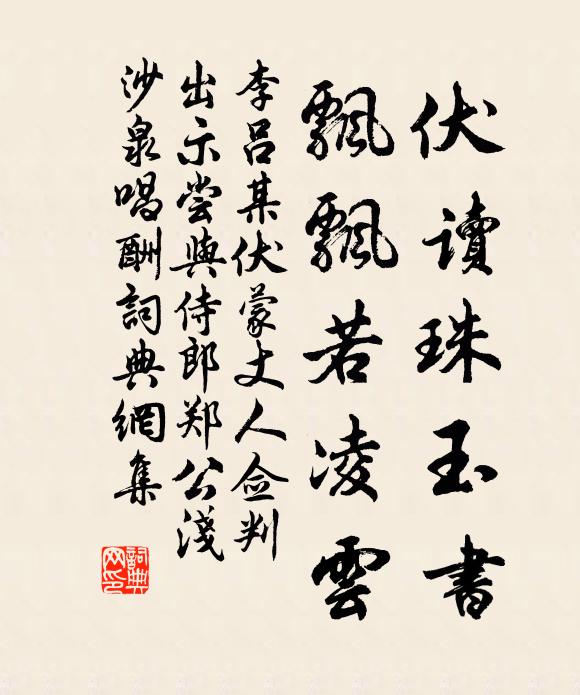 伏讀珠玉書
飄飄若凌雲
李呂某伏蒙丈人僉判
出示嘗與侍郎郑公淺
沙泉唱酬詞典網集
詞典
网印